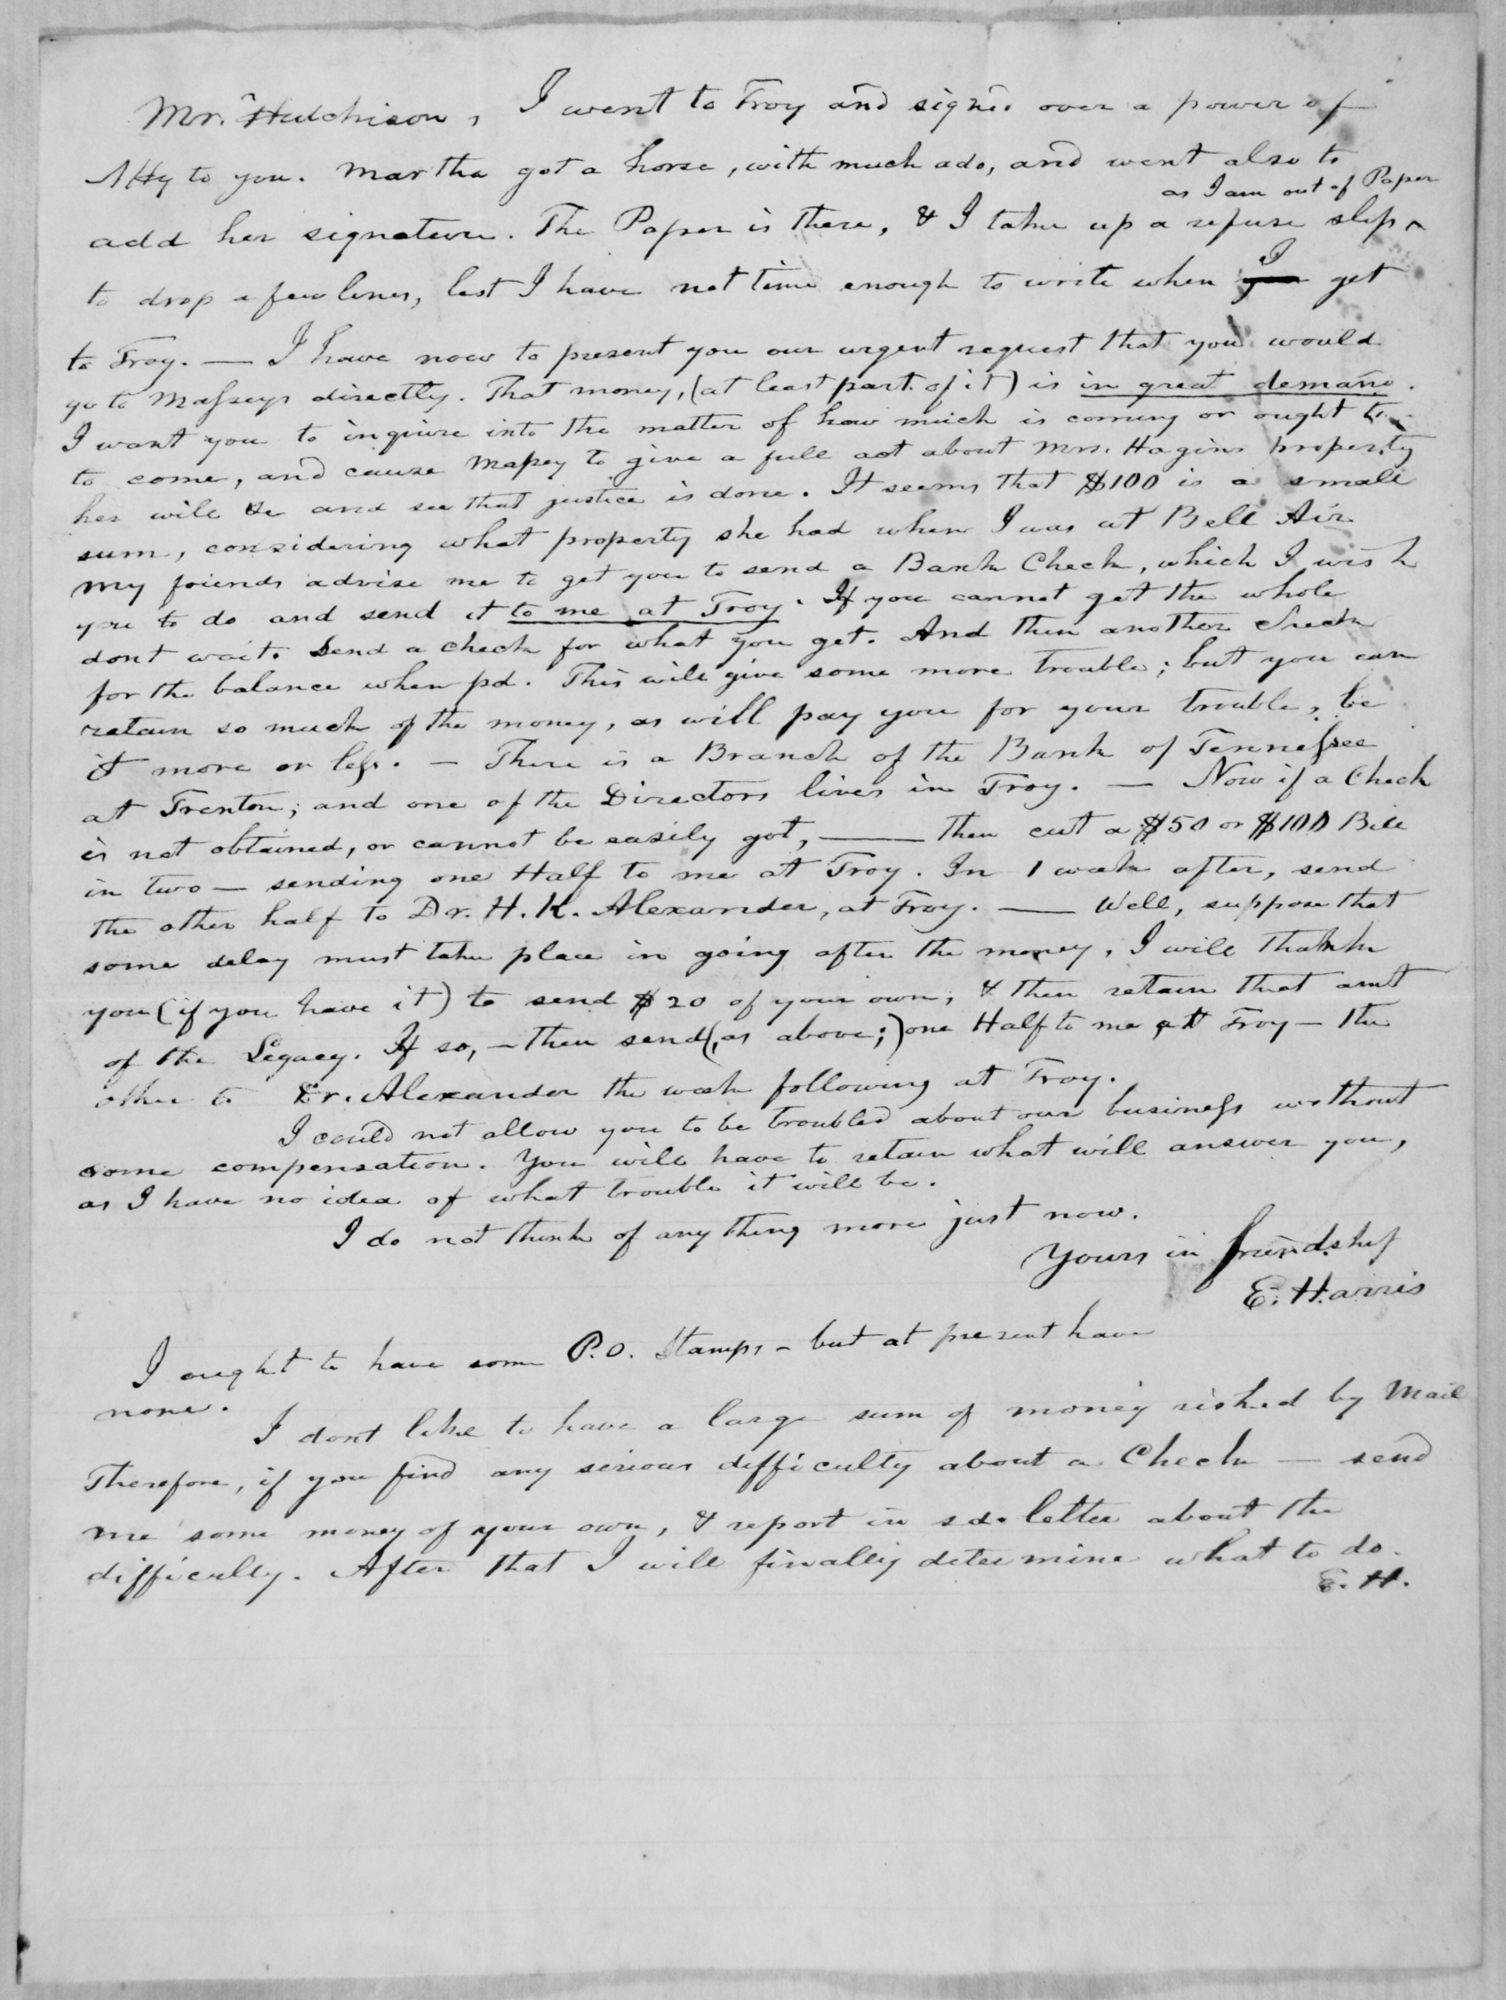 Mr. Hutchison, I went to Troy and signed over a power of
Atty to you. Martha got a horse, with much ado, and went also to
as I am out of Paper
add her signature. The Paper is there, & I take up a refuse slip ^
to drop a few lines, lest I have not time enough to write when you I get
to Troy. — I have now to present you our urgent request that you would
go to Masseys directly. That money, (at least part of it) is in great demand.
I want you to inquire into the matter of how much is coming or ought to
to come, and cause Massey to give a full act about Mrs. Hagins property
her will &c and see that justice is done. It seems that $100 is a small
sum, considering what property she had when I was at Bell Air
My friends advise me to get you to send a Bank Check, which I wish
you to do and send it to me at Troy. If you cannot get the whole
dont wait. Send a check for what you get. And then another check
for the balance when pd. This will give some more trouble; but you can
retain so much of the money, as will pay you for your trouble, be
it more or less. — There is a Branch of the Bank of Tennessee
at Trenton; and one of the Directors lives in Troy. — Now if a Check
is not obtained, or cannot be easily got, — then cut a $50 or $100 Bill
in two — sending one Half to me at Troy. In 1 week after, send
the other half to Dr. H. K. Alexander, at Troy. — Well, suppose that
some delay must take place in going after the money, I will thank
you (if you have it) to send $20 of your own, & then retain that amt
of the Legacy. If so, — then send (, as above;) one Half to me at Troy — the
other to Dr. Alexander the week following at Troy.
I could not allow you to be troubled about our business without
some compensation. You will have to retain what will answer you,
as I have no idea of what trouble it will be.
I do not think of any thing more just now.
Yours in friendship
E. Harris
I ought to have some P.O. Stamps – but at present have
none.
I dont like to have a large sum of money risked by Mail
Therefore, if you find any serious difficulty about a Check — send
me some money of your own, & report in sd. letter about the
difficulty. After that I will finally determine what to do.
E. H.